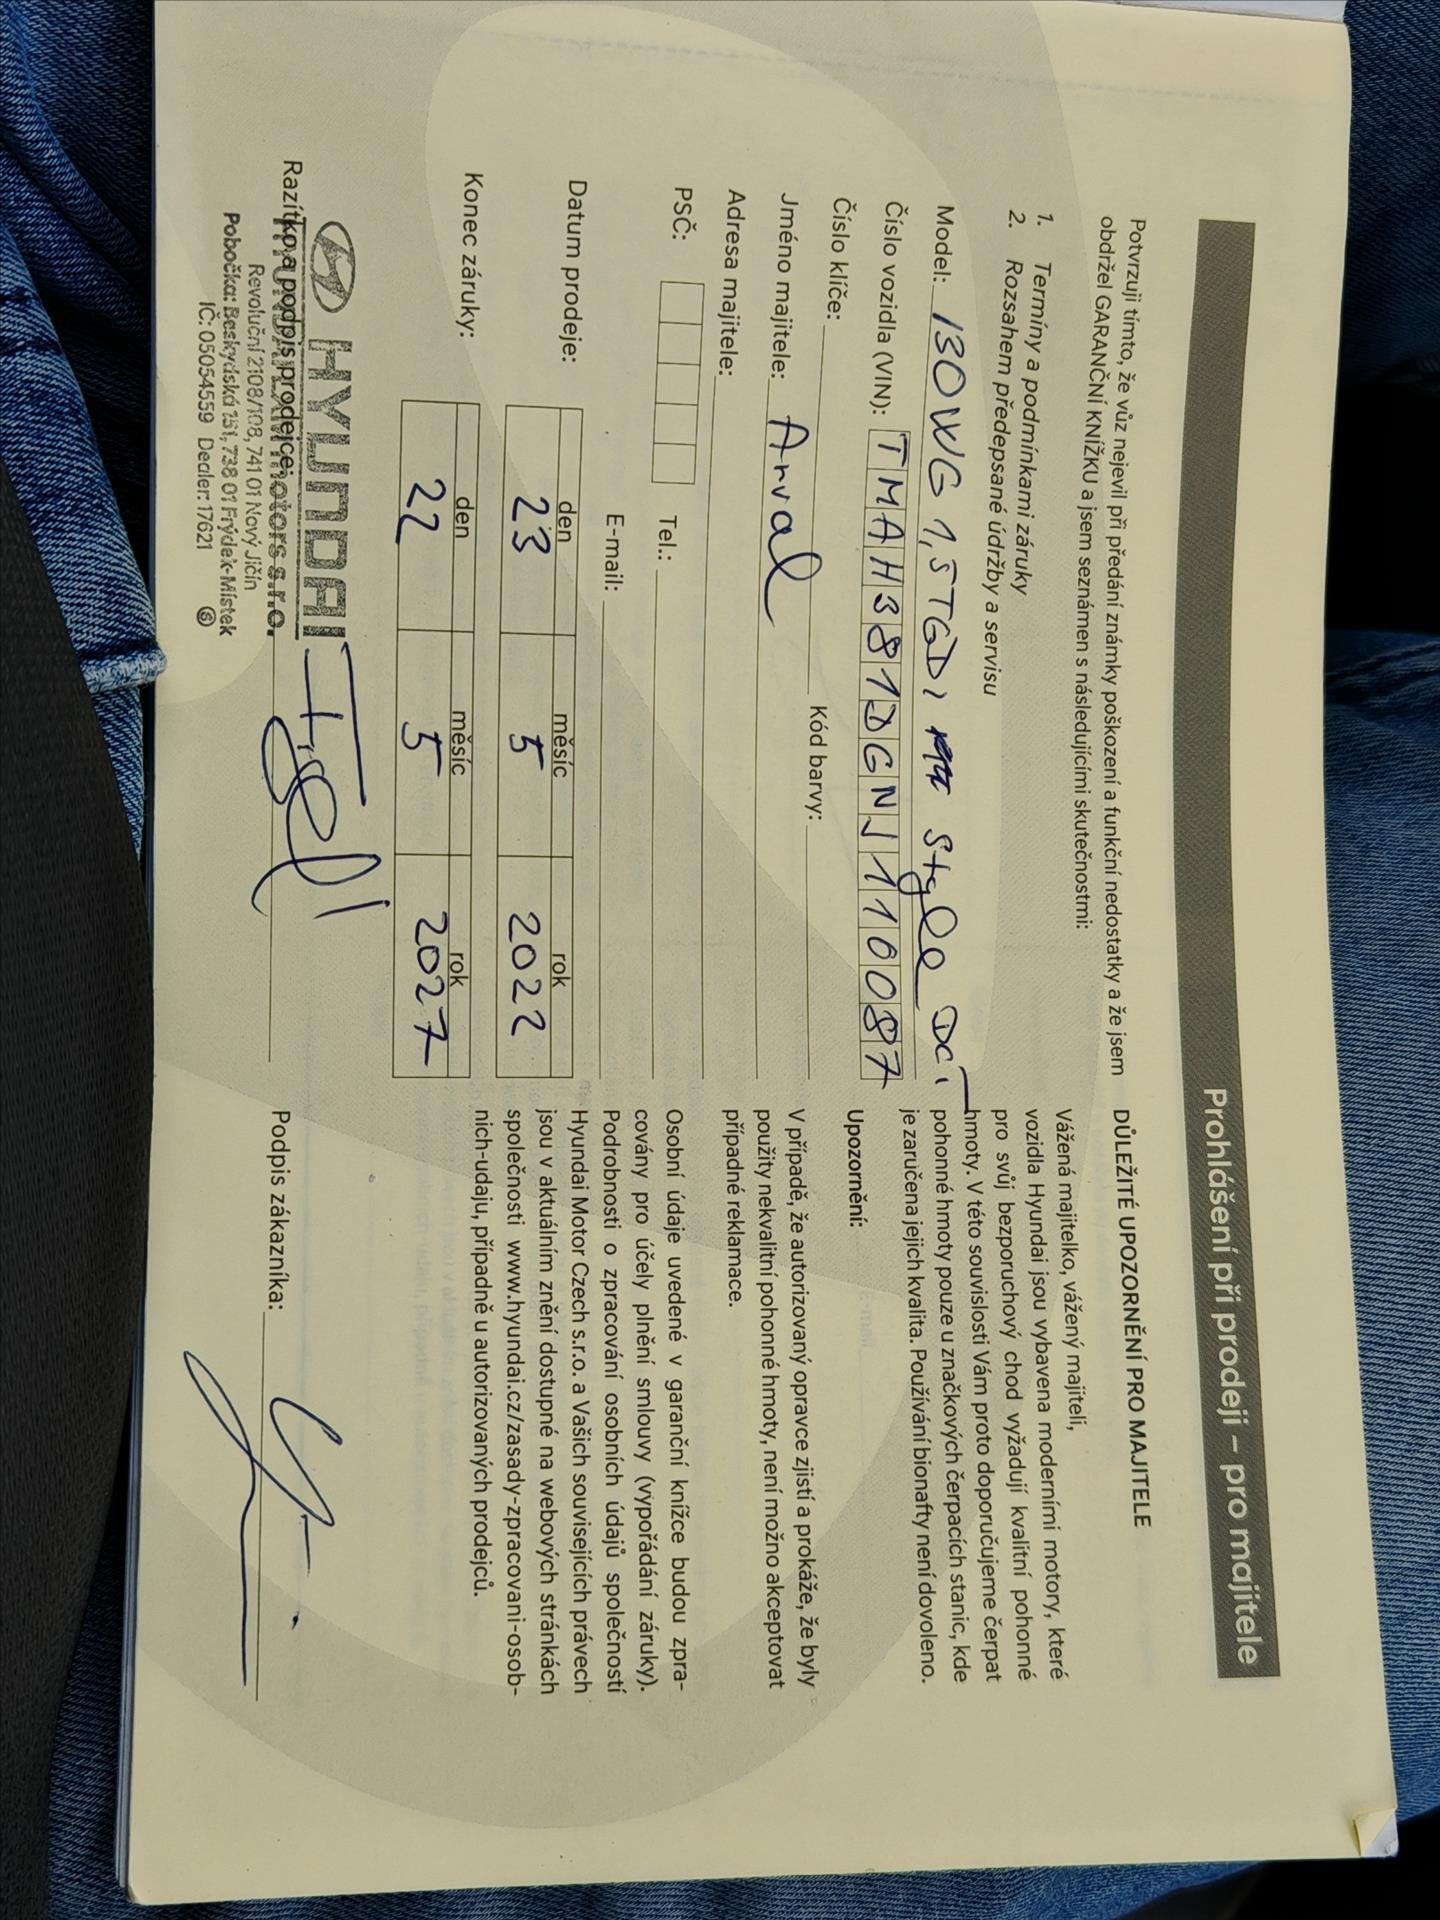 Prohlášení při prodeji – pro majitele
Potvrzuji tímto, že vůz nejevil při předání známky poškození a funkční nedostatky a že jsem
obdržel GARANČNÍ KNÍŽKU a jsem seznámen s následujícími skutečnostmi:
1. Termíny a podmínkami záruky
2. Rozsahem předepsané údržby a servisu
Model: I30WG 1,5TGDI Style DCT
Číslo vozidla (VIN): TMAH381DGNJ110087
Číslo klíče: Kód barvy:
Jméno majitele: Arval
Adresa majitele:
PSČ: Tel.:
E-mail:
Datum prodeje: den 23 měsíc 5 rok 2022
Konec záruky: den 22 měsíc 5 rok 2027
Razítko a podpis prodejce:
HYUNDAI
motors s.r.o.
Revoluční 2108/108, 741 01 Nový Jičín
Pobočka: Beskydská 151, 738 01 Frýdek-Místek
IČ: 05054559 Dealer: 17621
DŮLEŽITÉ UPOZORNĚNÍ PRO MAJITELE
Vážená majitelko, vážený majiteli,
vozidla Hyundai jsou vybavena moderními motory, které
pro svůj bezporuchový chod vyžadují kvalitní pohonné
hmoty. V této souvislosti Vám proto doporučujeme čerpat
pohonné hmoty pouze u značkových čerpacích stanic, kde
je zaručena jejich kvalita. Používání bionafty není dovoleno.
Upozornění:
V případě, že autorizovaný opravce zjistí a prokáže, že byly
použity nekvalitní pohonné hmoty, není možno akceptovat
případné reklamace.
Osobní údaje uvedené v garanční knížce budou zpra-
covány pro účely plnění smlouvy (vypořádání záruky).
Podrobnosti o zpracování osobních údajů společností
Hyundai Motor Czech s.r.o. a Vašich souvisejících právech
jsou v aktuálním znění dostupné na webových stránkách
společnosti www.hyundai.cz/zasady-zpracovani-osob-
nich-udaju, případně u autorizovaných prodejců.
Podpis zákazníka: